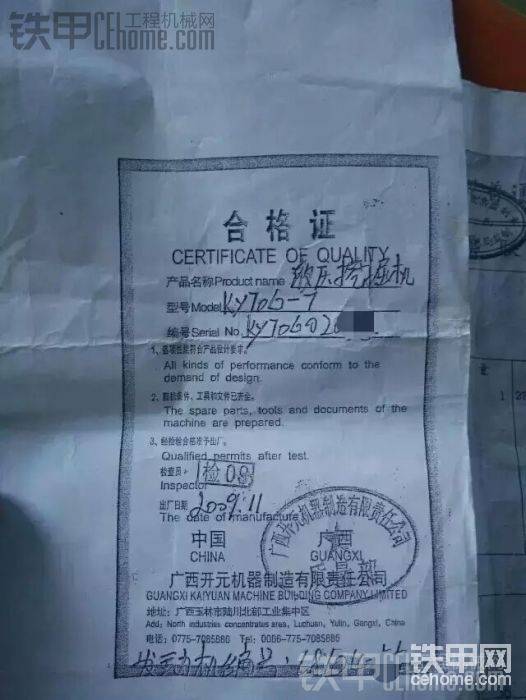 铁甲 工程机械网
Cehome.com
合格证
CERTIFICATE OF QUALITY
产品名称Product name 液压挖掘机
型号Model KY706-7
编号Serial No. KY70602
1、各项性能符合产品设计要求。
All kinds of performance conform to the
demand of design.
2、随机备件、工具和文件已齐全。
The spare parts, tools and documents of the
machine are prepared.
3、经检验合格准予出厂。
Qualified permits after test.
检查员: 检08
Inspector
出厂日期 2009.11
The date of manufacture
中国 广西
CHINA GUANGXI
广西开元机器制造有限责任公司
质量部
广西开元机器制造有限责任公司
GUANGXI KAIYUAN MACHINE BUILDING COMPANY LIMITED
地址：广西玉林市陆川北部工业集中区
Add: North industries concentrates area, Luchuan, Yulin, Gangxi, China
电话：0775-7085886 Tel: 0086-775-7085886
发动机编号：
铁甲网
cehome.com